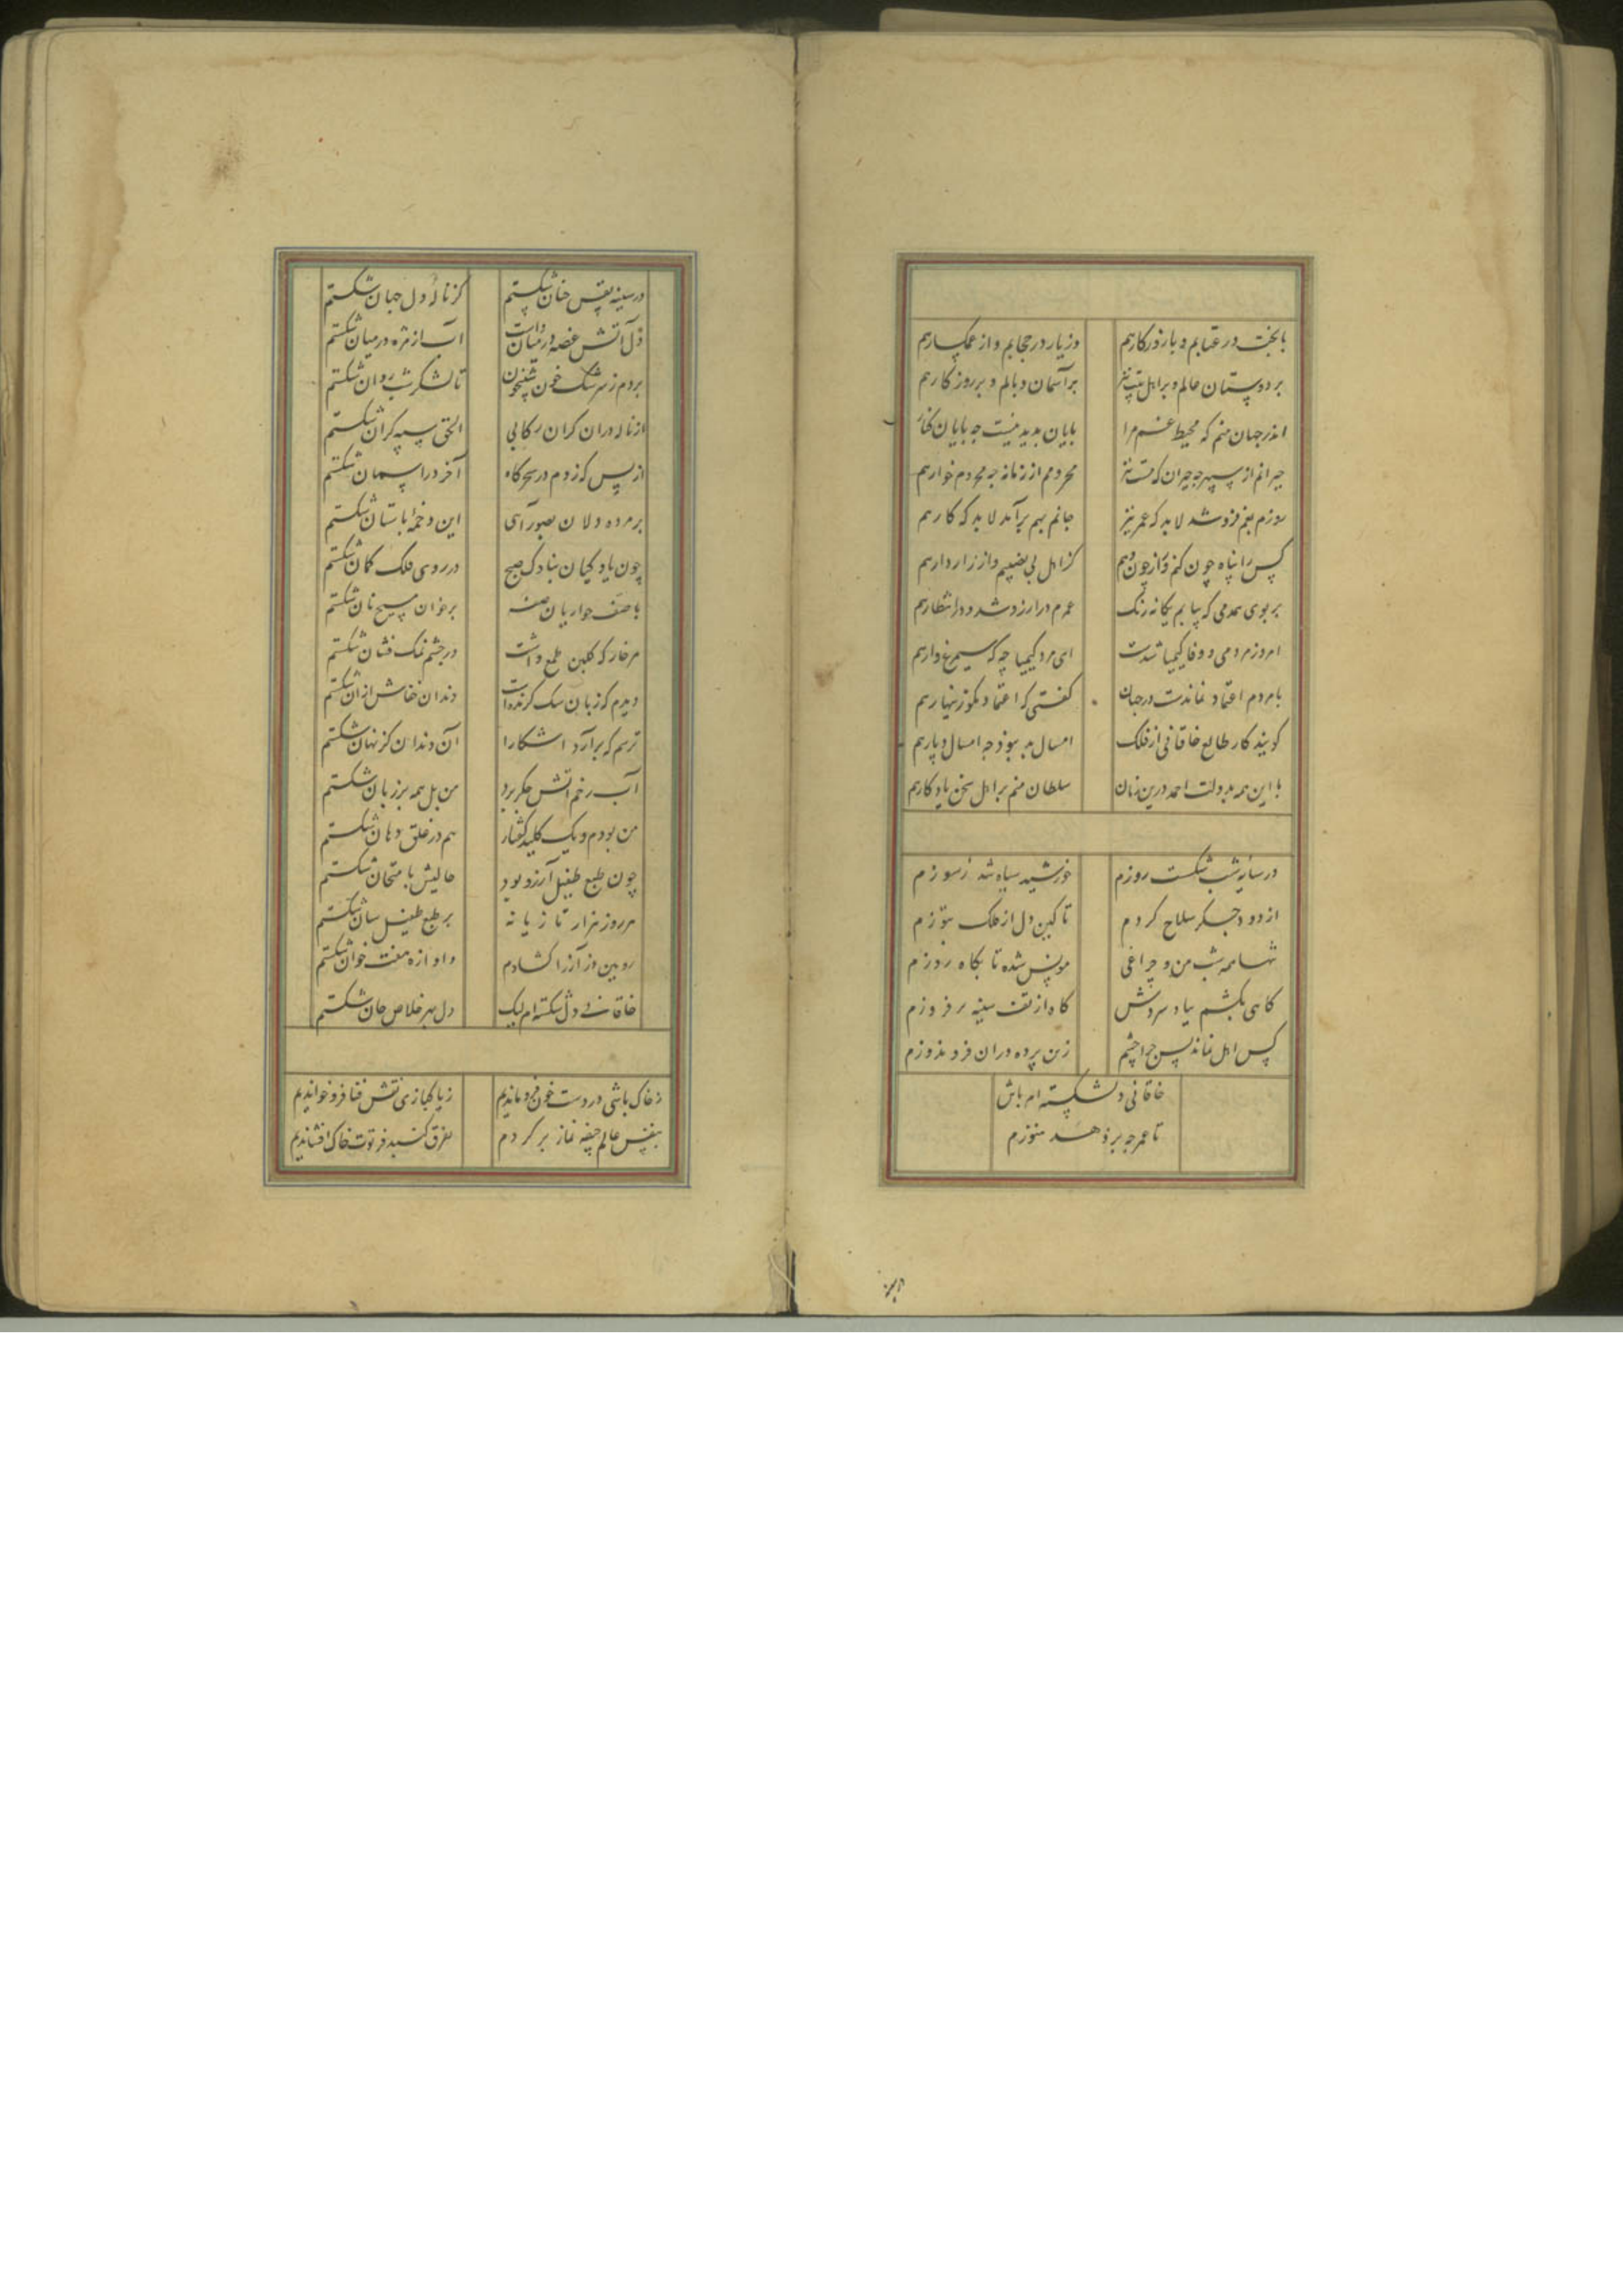 با بخت در عتابم و با روزکارهم
وز یار در حجابم و از غمکسارهم
بر دوستان عالم و بر اهل بیت نیز
بر آسمان وبالم و بر روزکارهم
اندر جهان منم که محیط غم مرا
بایان بدید نیست جه بایان کنار
حیرانم از سپهر جه حیران که مست نیز
محرومم از زمانه جه محروم خوارهم
روزم بغم فروشد لابد که عمر نیز
جانم بهم برآمد لابد که کارهم
کس را پناه چون کنم و راز چون دهم
کز اهل بی نصیبم و از رازدارهم
بر بوی همدمی که بیابم یکانه رنک
عمرم در آرزو شد و در انتظارهم
امروز مردمی و وفا کیمیا شدست
ای مرد کیمیا چه که سیمرغ وارهم
با مردم اعتماد نماندست در جهان
کفتی که اعتماد مکو زینهارهم
کویند کار طالع خاقانی از فلک
امسال بد ببوذ جه امسال و پارهم
با این همه بدولت احمد درین زمان
سلطان منم بر اهل سخن یادکارهم
در سایه شب شکست روزم
خورشید سیاه شد ز سوزم
از دود جکر سلاح کردم
تا کین دل از فلک بتوزم
تنها همه شب من و چراغی
مونس شده تا بکاه روزم
کاهی بکشم بباد سردش
کاه از تف سینه بر فروزم
کس اهل نماند پس چرا چشم
زین پرده دران فرو ندوزم
خاقانی دلشکسته ام باش
تا عمر جه بر دهد هنوزم
در سینه نفس چنان شکستم
کز ناله دل جهان شکستم
دل آتش غصه در میان داشت
آب از مژه در میان شکستم
بردم ز سرشک خون شبیخون
تا لشکر شب روان شکستم
از ناله دران کران رکابی
الحق سپه کران شکستم
از بس که زدم در سحرکاه
آخر در آسمان شکستم
بر مرده دلان بصور آهی
این دخمه باستان شکستم
چون یاوکیان بناوک صبح
در روی فلک کمان شکستم
با صف حواریان صفه
بر خوان مسیح نان شکستم
هر خار که کلبن طمع داشت
در چشم نمک فشان شکستم
دیدم که زبان سک کزنده است
دندان جفاش از آن شکستم
ترسم که برآرد آشکارا
آن دندان کز نهان شکستم
آب رخم آتش جکر برد
من بل همه بر زبان شکستم
من بودم و یک کلید کفتار
هم در غلق دهان شکستم
چون طبع طفیل آرزو بود
حالیش بامتحان شکستم
هر روز هزار تازیانه
بر طبع طفیل سان شکستم
رویین دز آز را کشادم
و اوازه هفت خوان شکستم
خاقانی دل شکسته ام لیک
دل بهر خلاص جان شکستم
ز خاک باشی در دست خون فرو ماندیم
ز پاکبازی نقش فنا فرو خواندیم
بنفس عالم جیفه نماز برکردم
بفرق کنبد فرتوت خاک افشاندیم